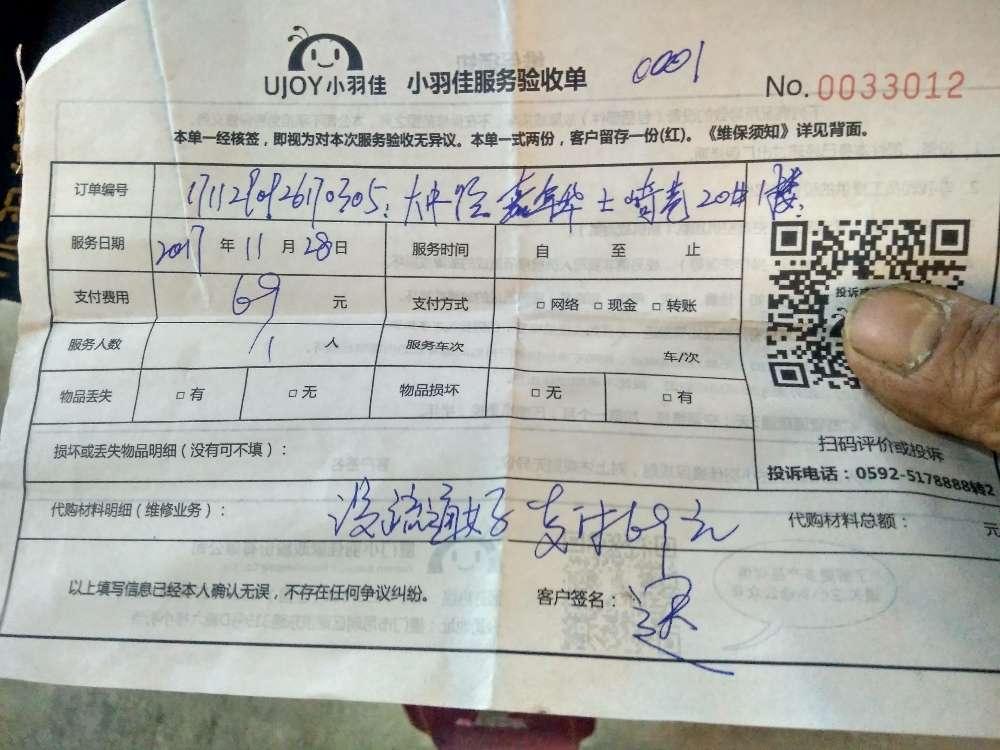 UJOY小羽佳 小羽佳服务验收单 0001 No. 0033012
本单一经核签，即视为对本次服务验收无异议。本单一式两份，客户留存一份(红)。《维保须知》详见背面。
订单编号
服务日期 2017 年 11 月 28 日 服务时间 自 至 止
支付费用 69 元 支付方式 □ 网络 □ 现金 □ 转账
服务人数 1 人 服务车次 车/次
物品丢失 □ 有 □ 无 物品损坏 □ 无 □ 有
损坏或丢失物品明细（没有可不填）：
扫码评价或投诉
投诉电话：0592-5178888转2
代购材料明细（维修业务）： 没疏通好 支付69元 代购材料总额： 元
以上填写信息已经本人确认无误，不存在任何争议纠纷。 客户签名：